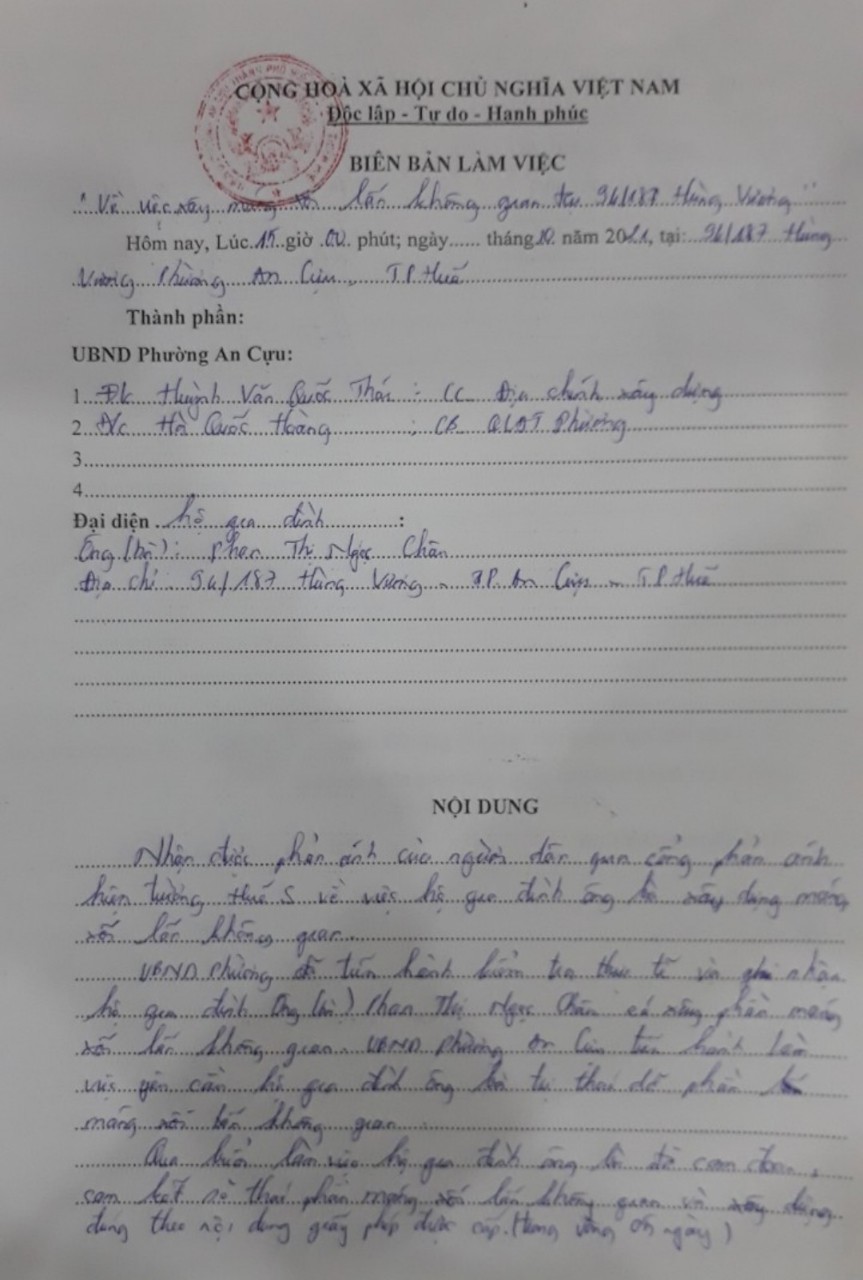 CỘNG HOÀ XÃ HỘI CHỦ NGHĨA VIỆT NAM
Độc lập - Tự do - Hạnh phúc
BIÊN BẢN LÀM VIỆC
"Về việc xây máng xối lấn không gian tại 94/187 Hùng Vương"
Hôm nay, Lúc 15 giờ 00 phút; ngày...... tháng 10 năm 2021, tại: 94/187 Hùng
Vương, Phường An Cựu, TP Huế
Thành phần:
UBND Phường An Cựu:
1. Đ/c Huỳnh Văn Quốc Thái : CC Địa chính xây dựng
2. Đ/c Hồ Quốc Hoàng : CB QLĐT Phường
3
4
Đại diện hộ gia đình :
Ông (bà): Phan Thị Ngọc Chân
Địa chỉ 94/187 Hùng Vương - P. An Cựu - TP Huế
NỘI DUNG
Nhận được phản ánh của người dân qua cổng phản ánh
hiện trường Huế S về việc hộ gia đình ông bà xây dựng máng
xối lấn không gian
UBND Phường đã tiến hành kiểm tra thực tế và ghi nhận
hộ gia đình Ông (bà) Phan Thị Ngọc Chân có xây phần máng
xối lấn không gian. UBND Phường An Cựu tiến hành làm
việc yêu cầu hộ gia đình ông bà tự tháo dỡ phần
máng xối lấn không gian
Qua buổi làm việc hộ gia đình ông bà đã cam đoan,
cam kết sẽ tháo phần máng xối lấn không gian và xây dựng
đúng theo nội dung giấy phép được cấp. (trong vòng 05 ngày)